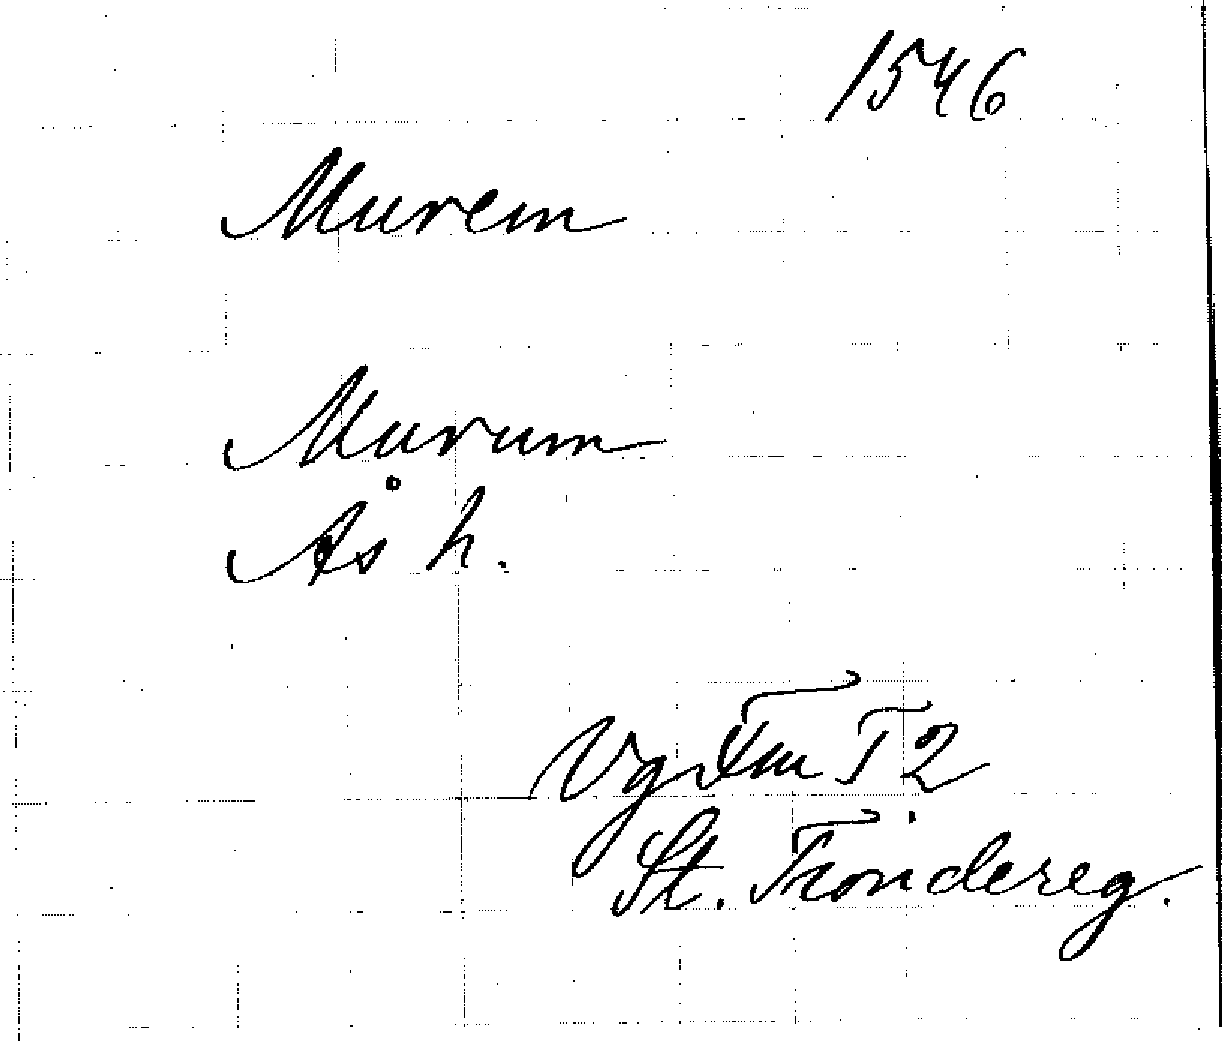 1546
Murem
Murum
Ås h.
Vg Fm T2
St. Tiondereg.